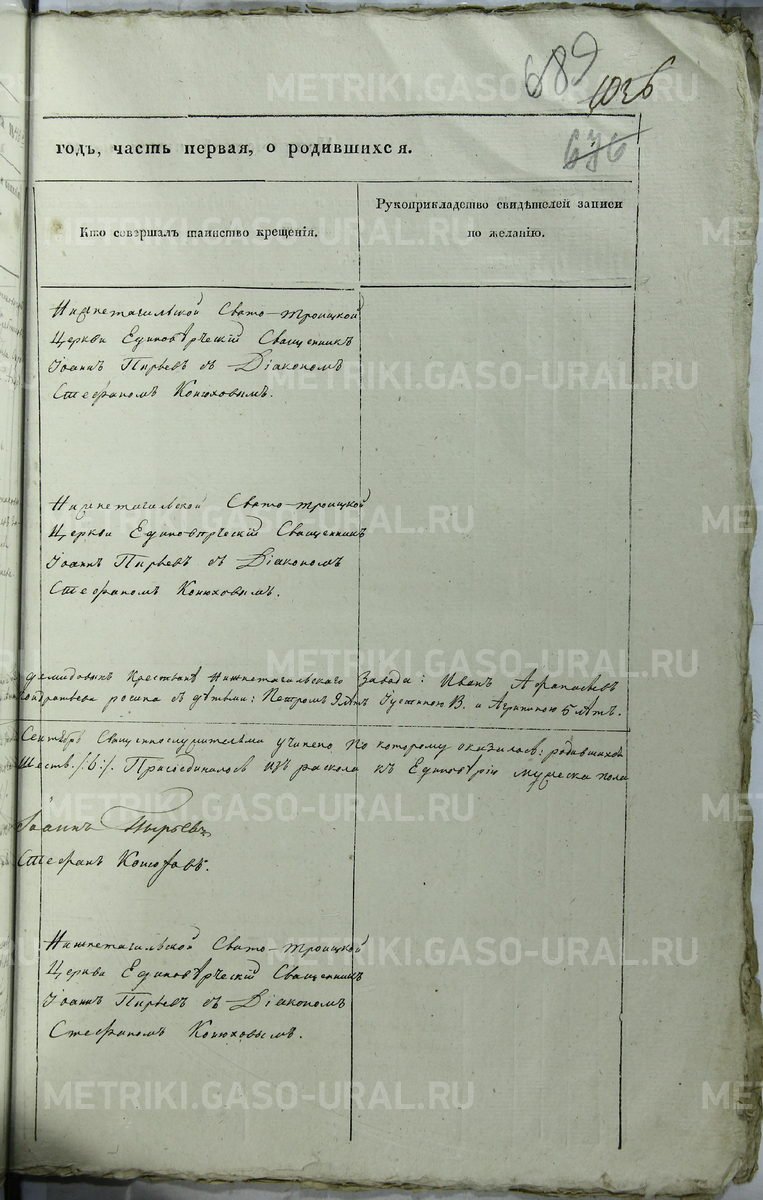 689
1026
676
годъ, часть первая, о родившихся.
Кто совершалъ таинство крещенія.
Рукоприкладство свидѣтелей записи
по желанію.
Нижнетагильской Свято-Троицкой
Церкви Единовѣрческій Священникъ
Іоаннъ Пырьевъ съ Діакономъ
Стефаномъ Конюховымъ.
Нижнетагильской Свято-Троицкой
Церкви Единовѣрческій Священникъ
Іоаннъ Пырьевъ съ Діакономъ
Стефаномъ Конюховымъ.
демидовыхъ Крестьяне Нижнетагильскаго Завода: Иванъ Афанасьевъ
съ дѣтьми: Петромъ 9 лѣтъ Іустиною 13. и Агрипиною 5 лѣтъ.
Сентябрѣ Священнослужительми учинено по которому оказалось: родившихся
шесть /:6:/. Присоединилось изъ раскола къ Единовѣрію мужеска пола
Іоаннъ Пырьевъ
Стефанъ Конюховъ.
Нижнетагильской Свято-Троицкой
Церкви Единовѣрческій Священникъ
Іоаннъ Пырьевъ съ Діакономъ
Стефаномъ Конюховымъ.
METRIKI.GASO-URAL.RU